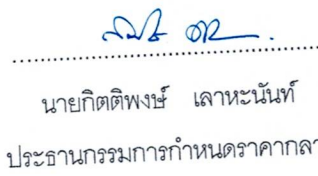 นายกิตติพงษ์ เลาหะนันท์
ประธานกรรมการกำหนดราคากลา